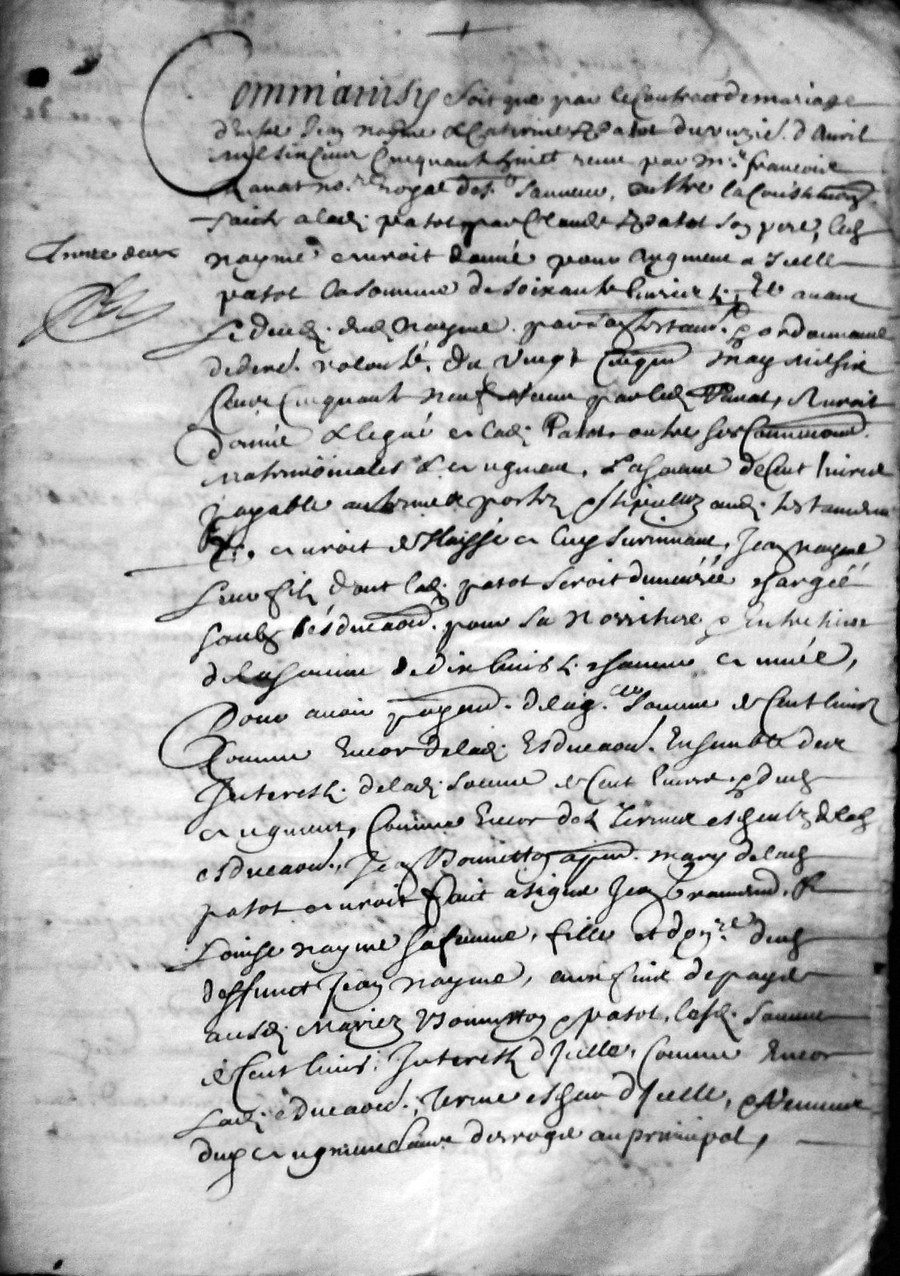 Comm'ainsy soit que par le Contract de mariage
d'entre Jean nayme & Caterine patot du vuziē. d'Avril
mil six Cens Cinquant huict receu par mr. francois
Ranat nore. royal de st. Sauveur, outre la Constituōn
faicte a lad. patot par Claude patot son pere, led.
Annee deux
nayme auroit donné pour augment a Icelle
patot la somme de soixante livres t. Et avant
le deces dud. nayme par son testamt. &ordonnance
de derē. volonté. du vingt Cinqe. may mil six
Cens Cinquante neuf receu par led. Ranat, Auroit
donné & legué a lad. Patot outre ses Conventions
matrimoniales & augment, la somme de Cent livres
payable au terme porté & stipullez aud. testament
Et. auroit delaissé a luy survivant, Jean nayme
leur fils dont lad. patot seroit demeurée chargée
soubz l'éducaōn. pour sa norriture & Entretien
de la somme de dix livres t. chacune année,
Pour avoir payemt. de lad. somme de Cent livres
Comme Encor de lad. Esducaōn. Ensemble des
Interestz. de lad. somme de Cent livres & dud.
augment, Comme Encor des termes escheutz de lad.
esducaōn., Jean Bonnetton a present mary de lad.
patot auroit faict asigné Jean &
Louise nayme sa femme, fille et donre. dud.
deffunct Jean nayme, aux fins de payer
ausd. Mariez Bonnetton & patot, lesd. somme
de Cent livres. Interestz d'Icelle, Comme Encor
lad. éducaōn., terme escheu d'Icelle, &
dud. augment sans desroger au principal,